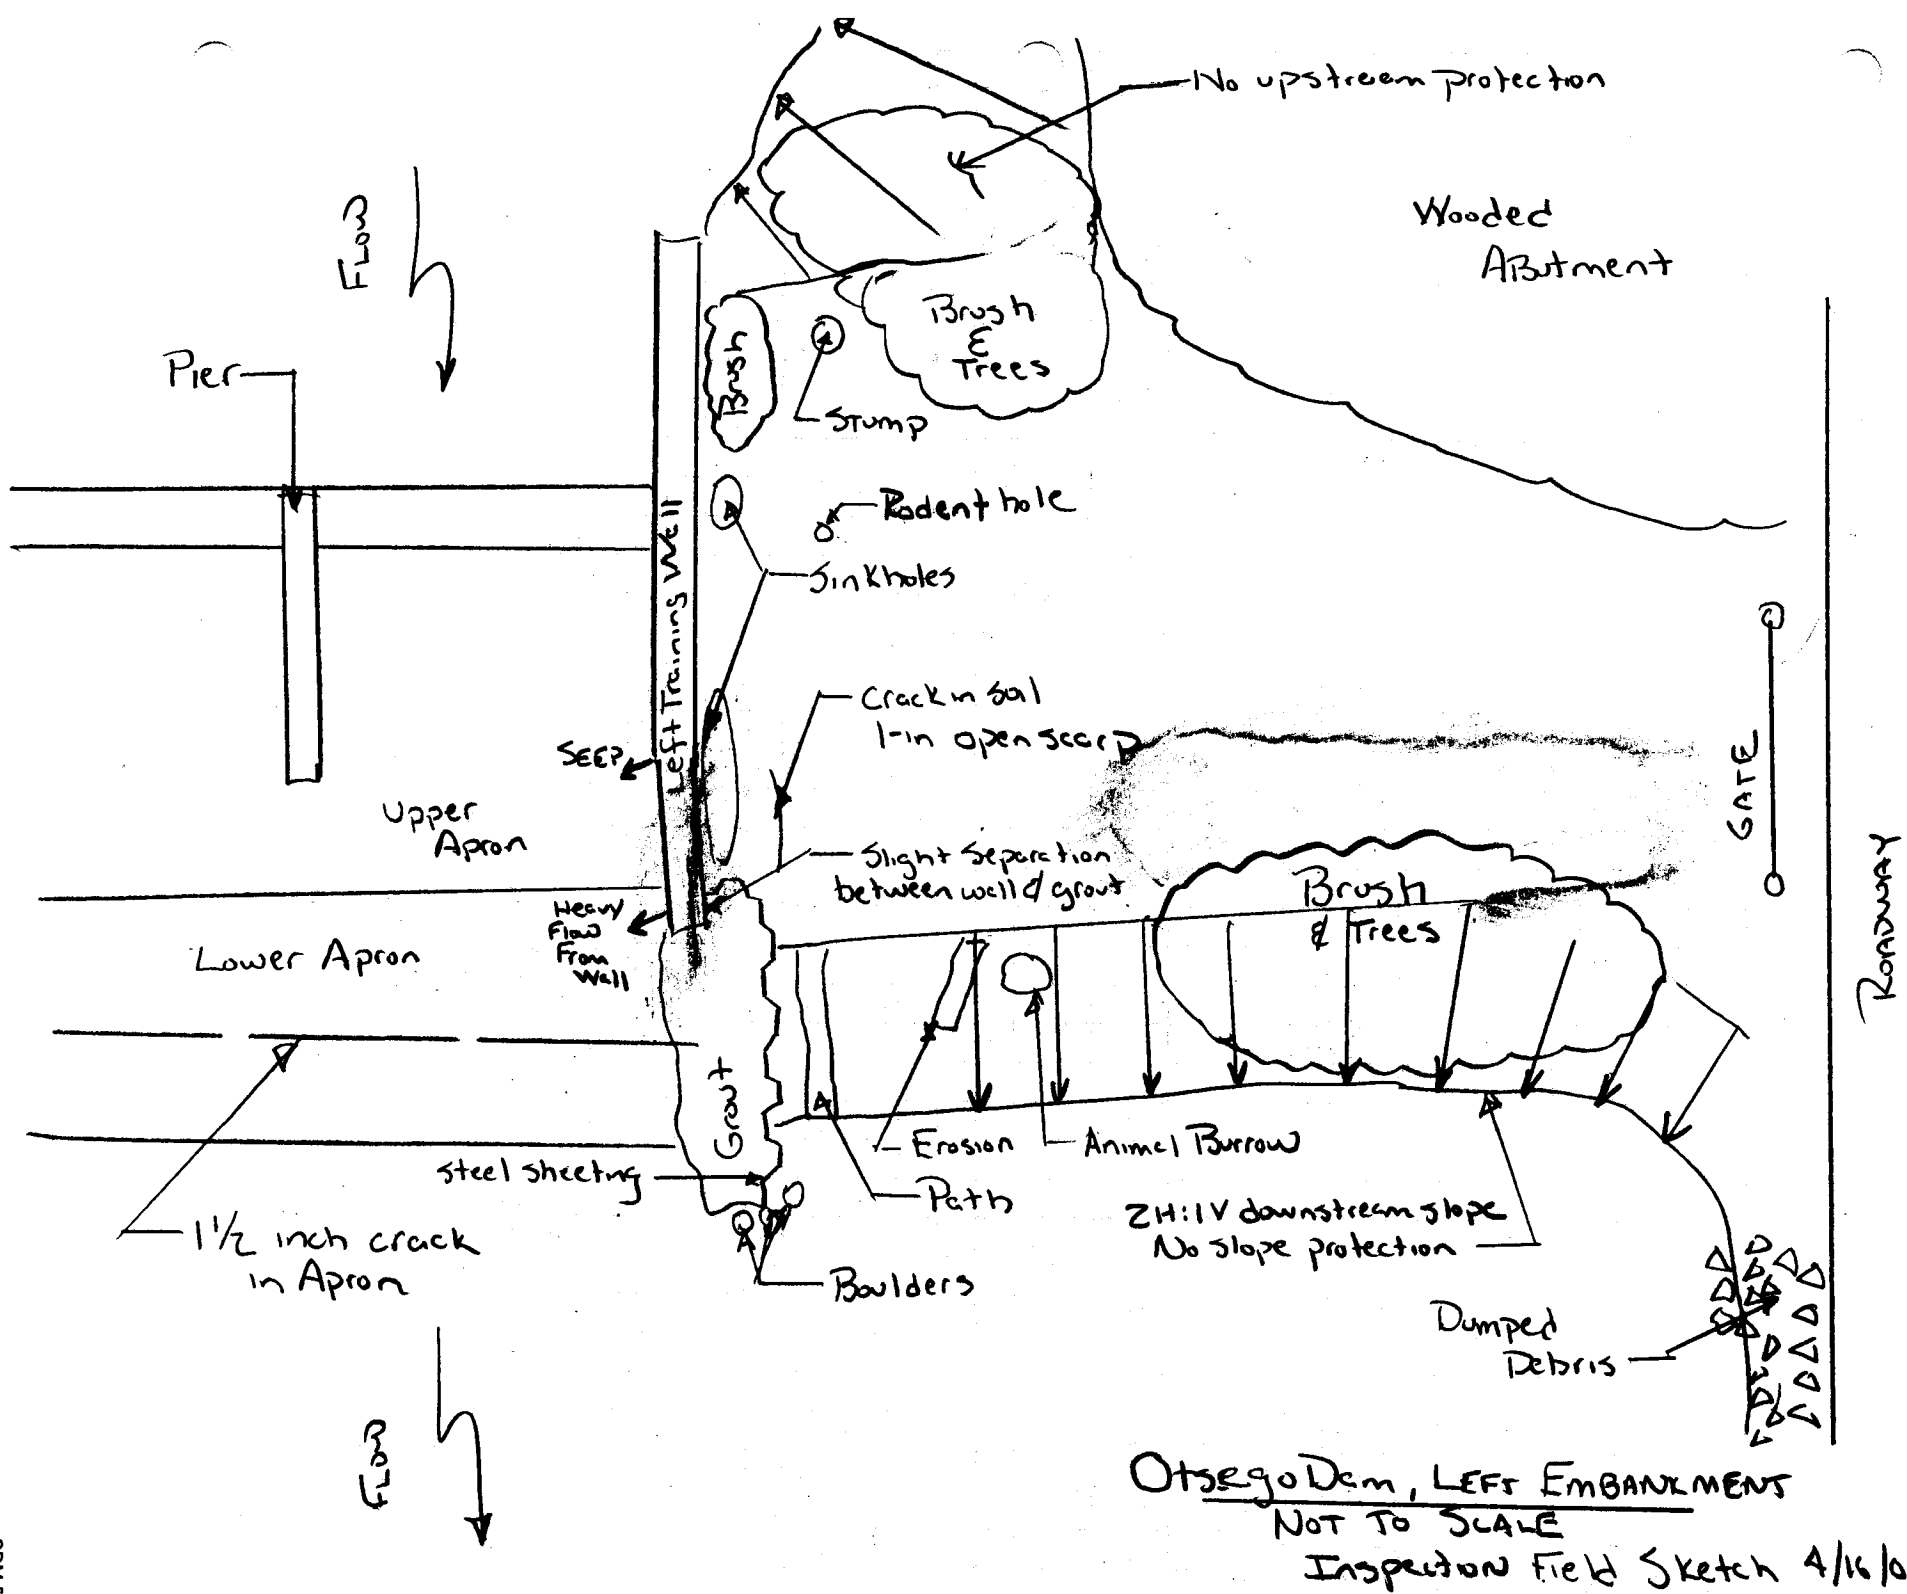 No upstream protection
FLOW
Wooded
Abutment
Brush
&
Trees
Brush
Pier
Stump
Rodent hole
Left Training Wall
Sinkholes
Crack in soil
1-in open scarp
SEEP
GATE
Upper
Apron
Slight Separation
between wall & grout
Brush
& Trees
ROADWAY
Heavy
Flow
From
Wall
Lower Apron
Grout
Erosion
Animal Burrow
Steel sheeting
Path
2H:1V downstream slope
No slope protection
1 1/2 inch crack
in Apron
Boulders
Dumped
Debris
FLOW
Otsego Dam, LEFT EMBANKMENT
NOT TO SCALE
Inspection Field Sketch 4/16/0